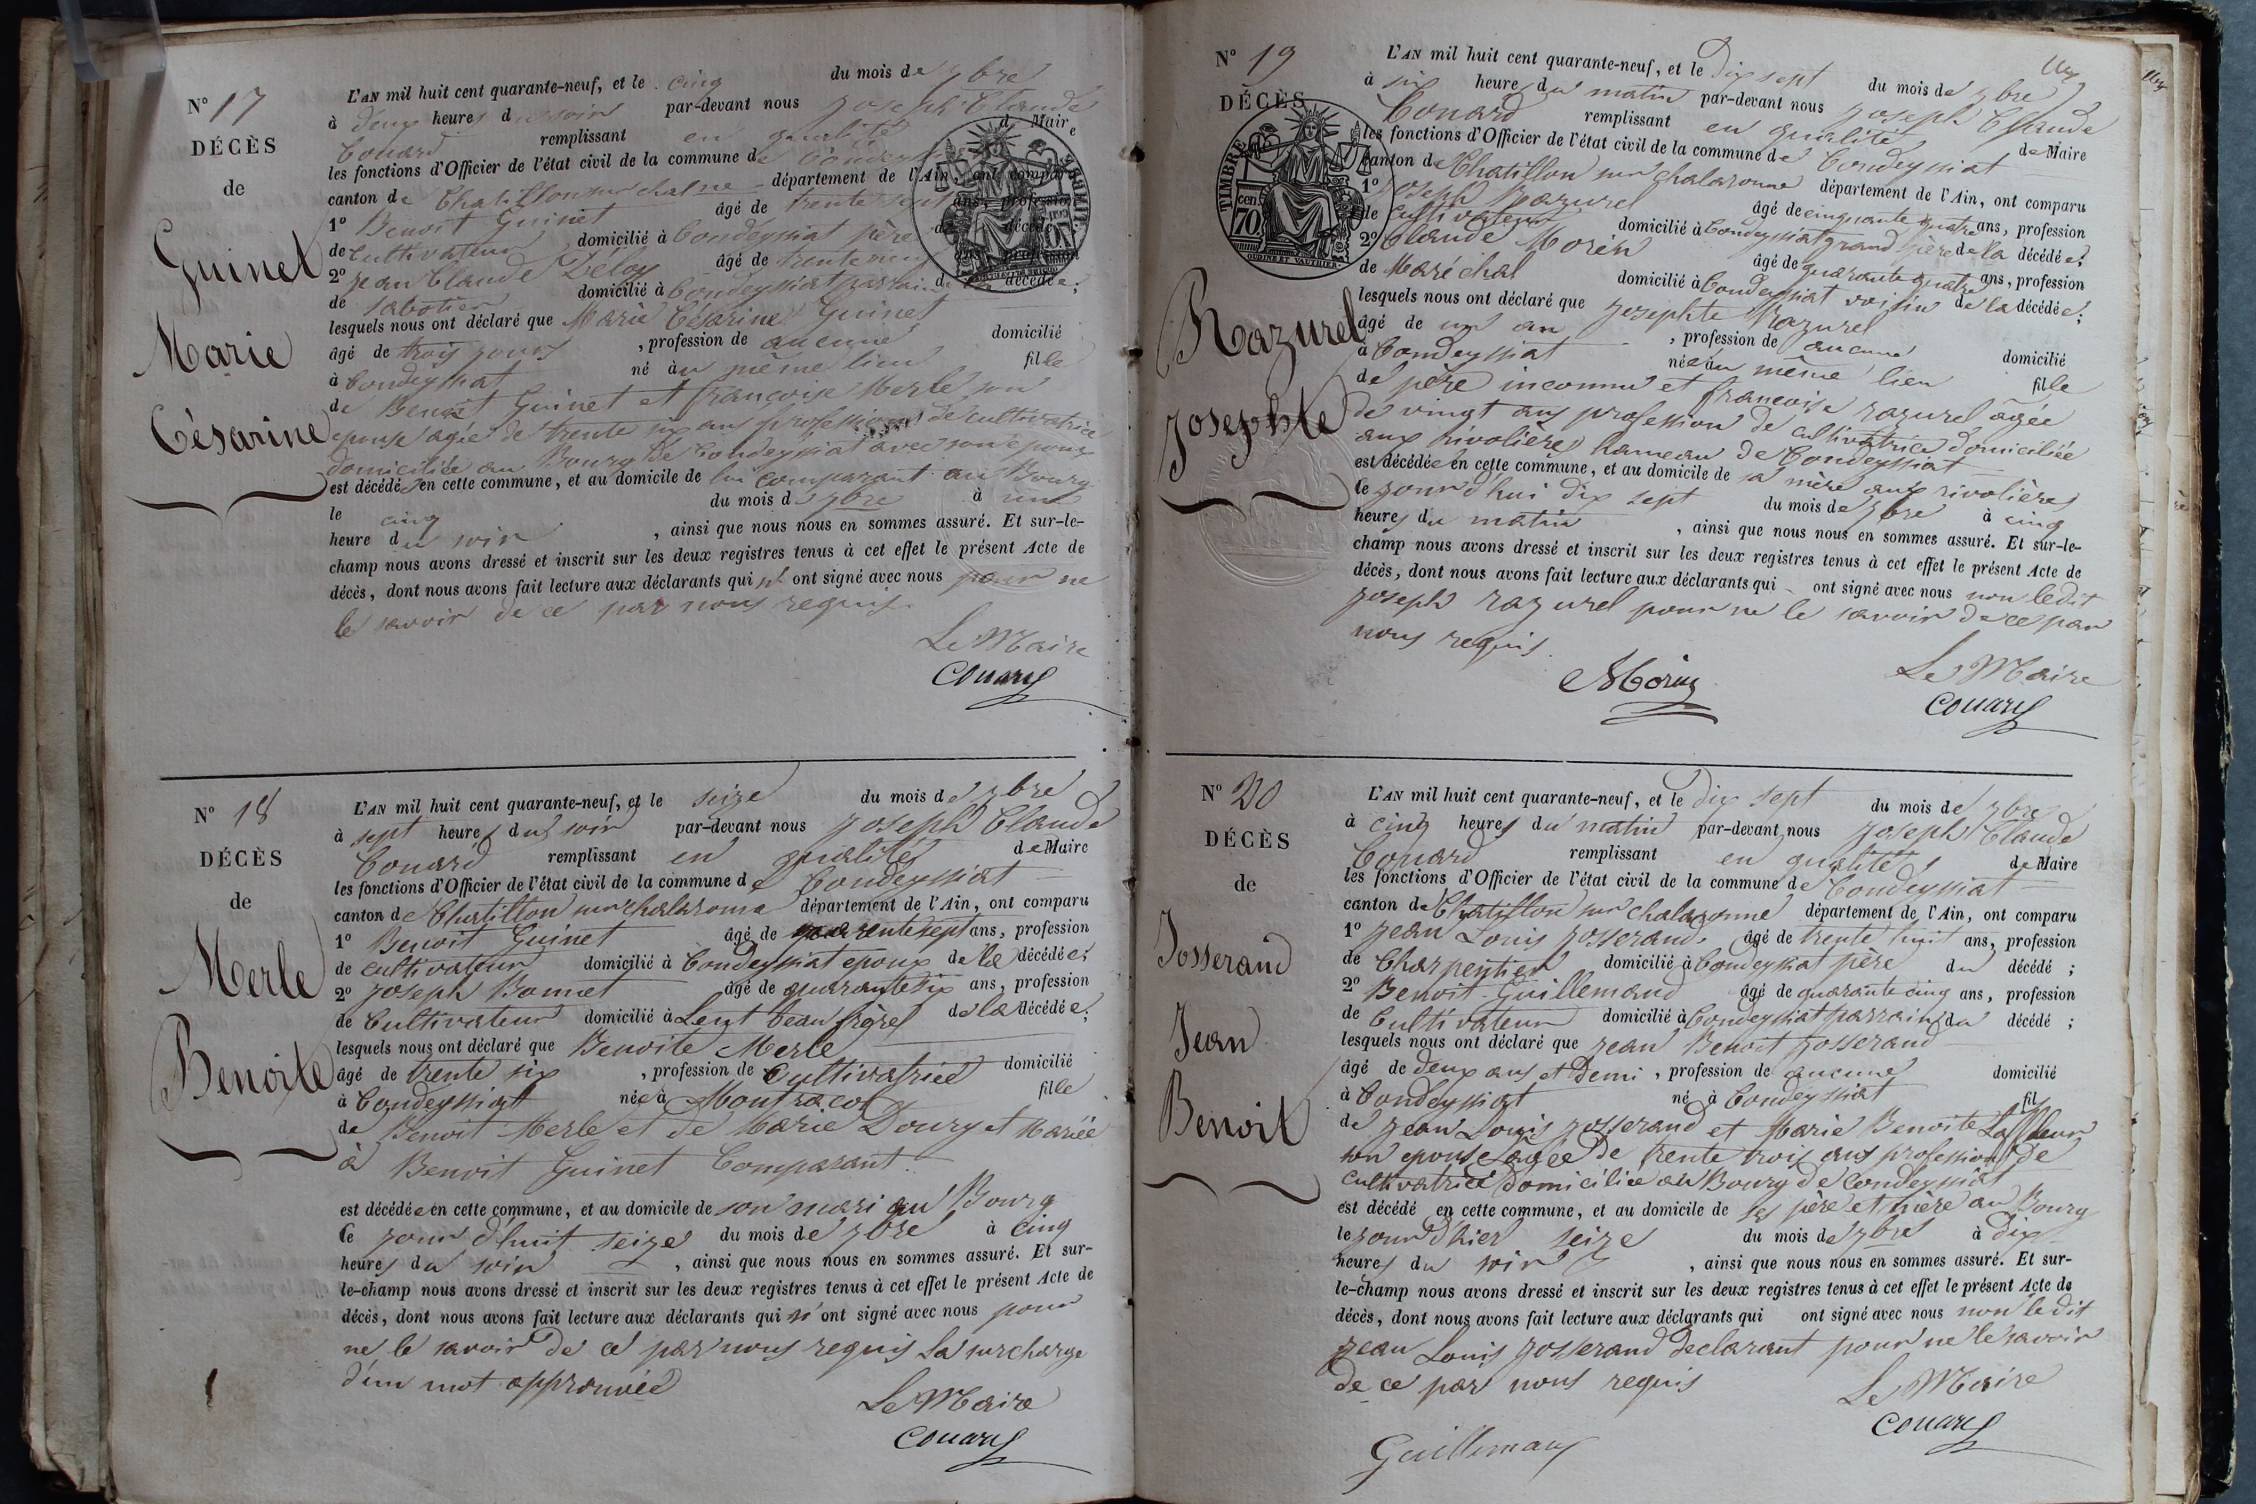 N° 17
DÉCÈS
de
Guinet
Marie
Césarine
L'AN mil huit cent quarante-neuf, et le cinq du mois de 7bre
à deux heures du soir par-devant nous Joseph Claude
Couard remplissant en qualité de Maire
les fonctions d'Officier de l'état civil de la commune de Condeyssiat
canton de Chatillon sur chalne département de l'Ain, ont comparu
1° Benoit Guinet âgé de trente sept ans, profession
de Cultivateur domicilié à Condeyssiat père de décédée
2° Jean Claude Déloy âgé de trente neuf ans, profession
de Sabotier domicilié à Condeyssiat parrain de la décédée;
lesquels nous ont déclaré que Marie Césarine Guinet
âgé de trois jours , profession de aucune domicilié
à Condeyssiat né au même lieu fille
de Benoit Guinet et françoise Merle son
epouse agée de trente six ans profession de cultivatrice
domiciliée au Bourg de Condeyssiat avec son epoux
est décédée en cette commune, et au domicile de lui comparant au Bourg
le cinq du mois de 7bre à une
heure du soir , ainsi que nous nous en sommes assuré. Et sur-le-
champ nous avons dressé et inscrit sur les deux registres tenus à cet effet le présent Acte de
décès, dont nous avons fait lecture aux déclarants qui n' ont signé avec nous pour ne
le savoir de ce par nous requis.
Le Maire
Couard
N° 18
DÉCÈS
de
Merle
Benoite
L'AN mil huit cent quarante-neuf, et le seize du mois de 7bre
à sept heures du soir par-devant nous Joseph Claude
Couard remplissant en qualité de Maire
les fonctions d'Officier de l'état civil de la commune de Condeyssiat
canton de Chatillon sur chalarone département de l'Ain, ont comparu
1° Benoit Guinet âgé de trente sept ans, profession
de cultivateur domicilié à Condeyssiat epoux de la décédée;
2° Joseph Bonnet âgé de quarante six ans, profession
de Cultivateur domicilié à Lent beau frère de la décédée;
lesquels nous ont déclaré que Benoite Merle
âgé de trente six , profession de Cultivatrice domicilié
à Condeyssiat née à Montracol fille
de Benoit Merle et de Marie Doury et Mariée
à Benoit Guinet Comparant.
est décédée en cette commune, et au domicile de son mari au Bourg
le jour d'huit seize du mois de 7bre à cinq
heures du soir , ainsi que nous nous en sommes assuré. Et sur-
le-champ nous avons dressé et inscrit sur les deux registres tenus à cet effet le présent Acte de
décès, dont nous avons fait lecture aux déclarants qui n' ont signé avec nous pour
ne le savoir de ce par nous requis La surcharge
d'un mot approuvée
Le Maire
Couard
N° 19
DÉCÈS
TIMBRE
cen. 70
OUDINE ET VAUTHIER
Razurel
Josephte
L'AN mil huit cent quarante-neuf, et le Dix sept du mois de 7bre
à six heure du matin par-devant nous Joseph Claude
Couard remplissant en qualité de Maire
les fonctions d'Officier de l'état civil de la commune de Condeyssiat
canton de Chatillon sur chalaronne département de l'Ain, ont comparu
1° Joseph Razurel âgé de cinquante quatre ans, profession
de cultivateur domicilié à Condeyssiat grand père de la décédée;
2° Claude Morin âgé de quarante quatre ans, profession
de Maréchal domicilié à Condeyssiat voisin de la décédée;
lesquels nous ont déclaré que Josephte Razurel
âgé de un an , profession de aucune domicilié
à Condeyssiat née au même lieu fille
de père inconnu et françoise razurel âgée
de vingt ans profession de cultivatrice domiciliée
aux rivolières hameau de Condeyssiat
est décédée en cette commune, et au domicile de sa mère aux rivolières
le jourd'hui dix sept du mois de 7bre à cinq
heures du matin , ainsi que nous nous en sommes assuré. Et sur-le-
champ nous avons dressé et inscrit sur les deux registres tenus à cet effet le présent Acte de
décès, dont nous avons fait lecture aux déclarants qui ont signé avec nous non ledit
joseph razurel pour ne le savoir de ce par
nous requis.
Morin
Le Maire
Couard
N° 20
DÉCÈS
de
Josserand
Jean
Benoit
L'AN mil huit cent quarante-neuf, et le Dix sept du mois de 7bre
à cinq heures du matin par-devant nous Joseph Claude
Couard remplissant en qualité de Maire
les fonctions d'Officier de l'état civil de la commune de Condeyssiat
canton de Chatillon sur chalaronne département de l'Ain, ont comparu
1° Jean Louis Josserand âgé de trente huit ans, profession
de Charpentier domicilié à Condeyssiat père du décédé ;
2° Benoit Guillemaud âgé de quarante cinq ans, profession
de Cultivateur domicilié à Condeyssiat parrain du décédé ;
lesquels nous ont déclaré que Jean Benoit Josserand
âgé de deux ans et Demi , profession de aucune domicilié
à Condeyssiat né à Condeyssiat fil
de Jean Louis Josserand et Marie Benoite
son epouse âgée de trente trois ans profession de
cultivatrice domiciliée au Bourg de Condeyssiat
est décédé en cette commune, et au domicile de ses père et mère au Bourg
le jour d'hier seize du mois de 7bre à dix
heures du soir , ainsi que nous nous en sommes assuré. Et sur-
le-champ nous avons dressé et inscrit sur les deux registres tenus à cet effet le présent Acte de
décès, dont nous avons fait lecture aux déclarants qui ont signé avec nous non le dit
Jean Louis Josserand declarant pour ne le savoir
de ce par nous requis
Le Maire
Couard
Guillemaud